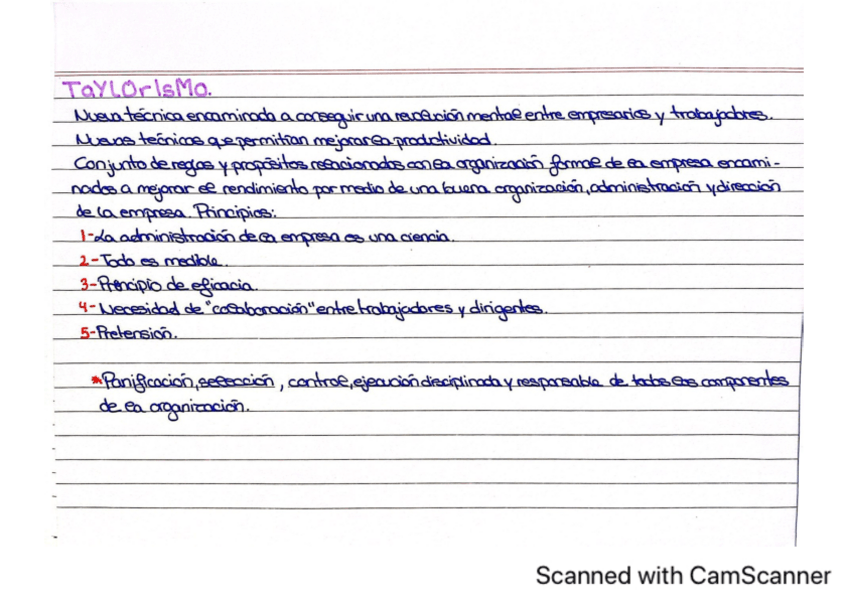 TaYLOrIsMo.
Nueva técnica encaminada a conseguir una revolución mental entre empresarios y trabajadores.
Nuevas técnicas que permitían mejorar la productividad.
Conjunto de reglas y propósitos relacionados con la organización formal de la empresa encami-
nados a mejorar el rendimiento por medio de una buena organización, administración y dirección
de la empresa. Principios:
1-La administración de la empresa es una ciencia.
2-Todo es medible.
3-Principio de eficacia.
4-Necesidad de "colaboración" entre trabajadores y dirigentes.
5-Pretensión.
*Panificación, selección, control, ejecución disciplinada y responsable de todos los componentes
de la organización.
Scanned with CamScanner